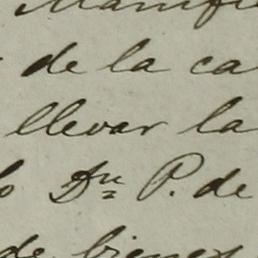 de la ca
llevar la
Dn P. de
de bienes